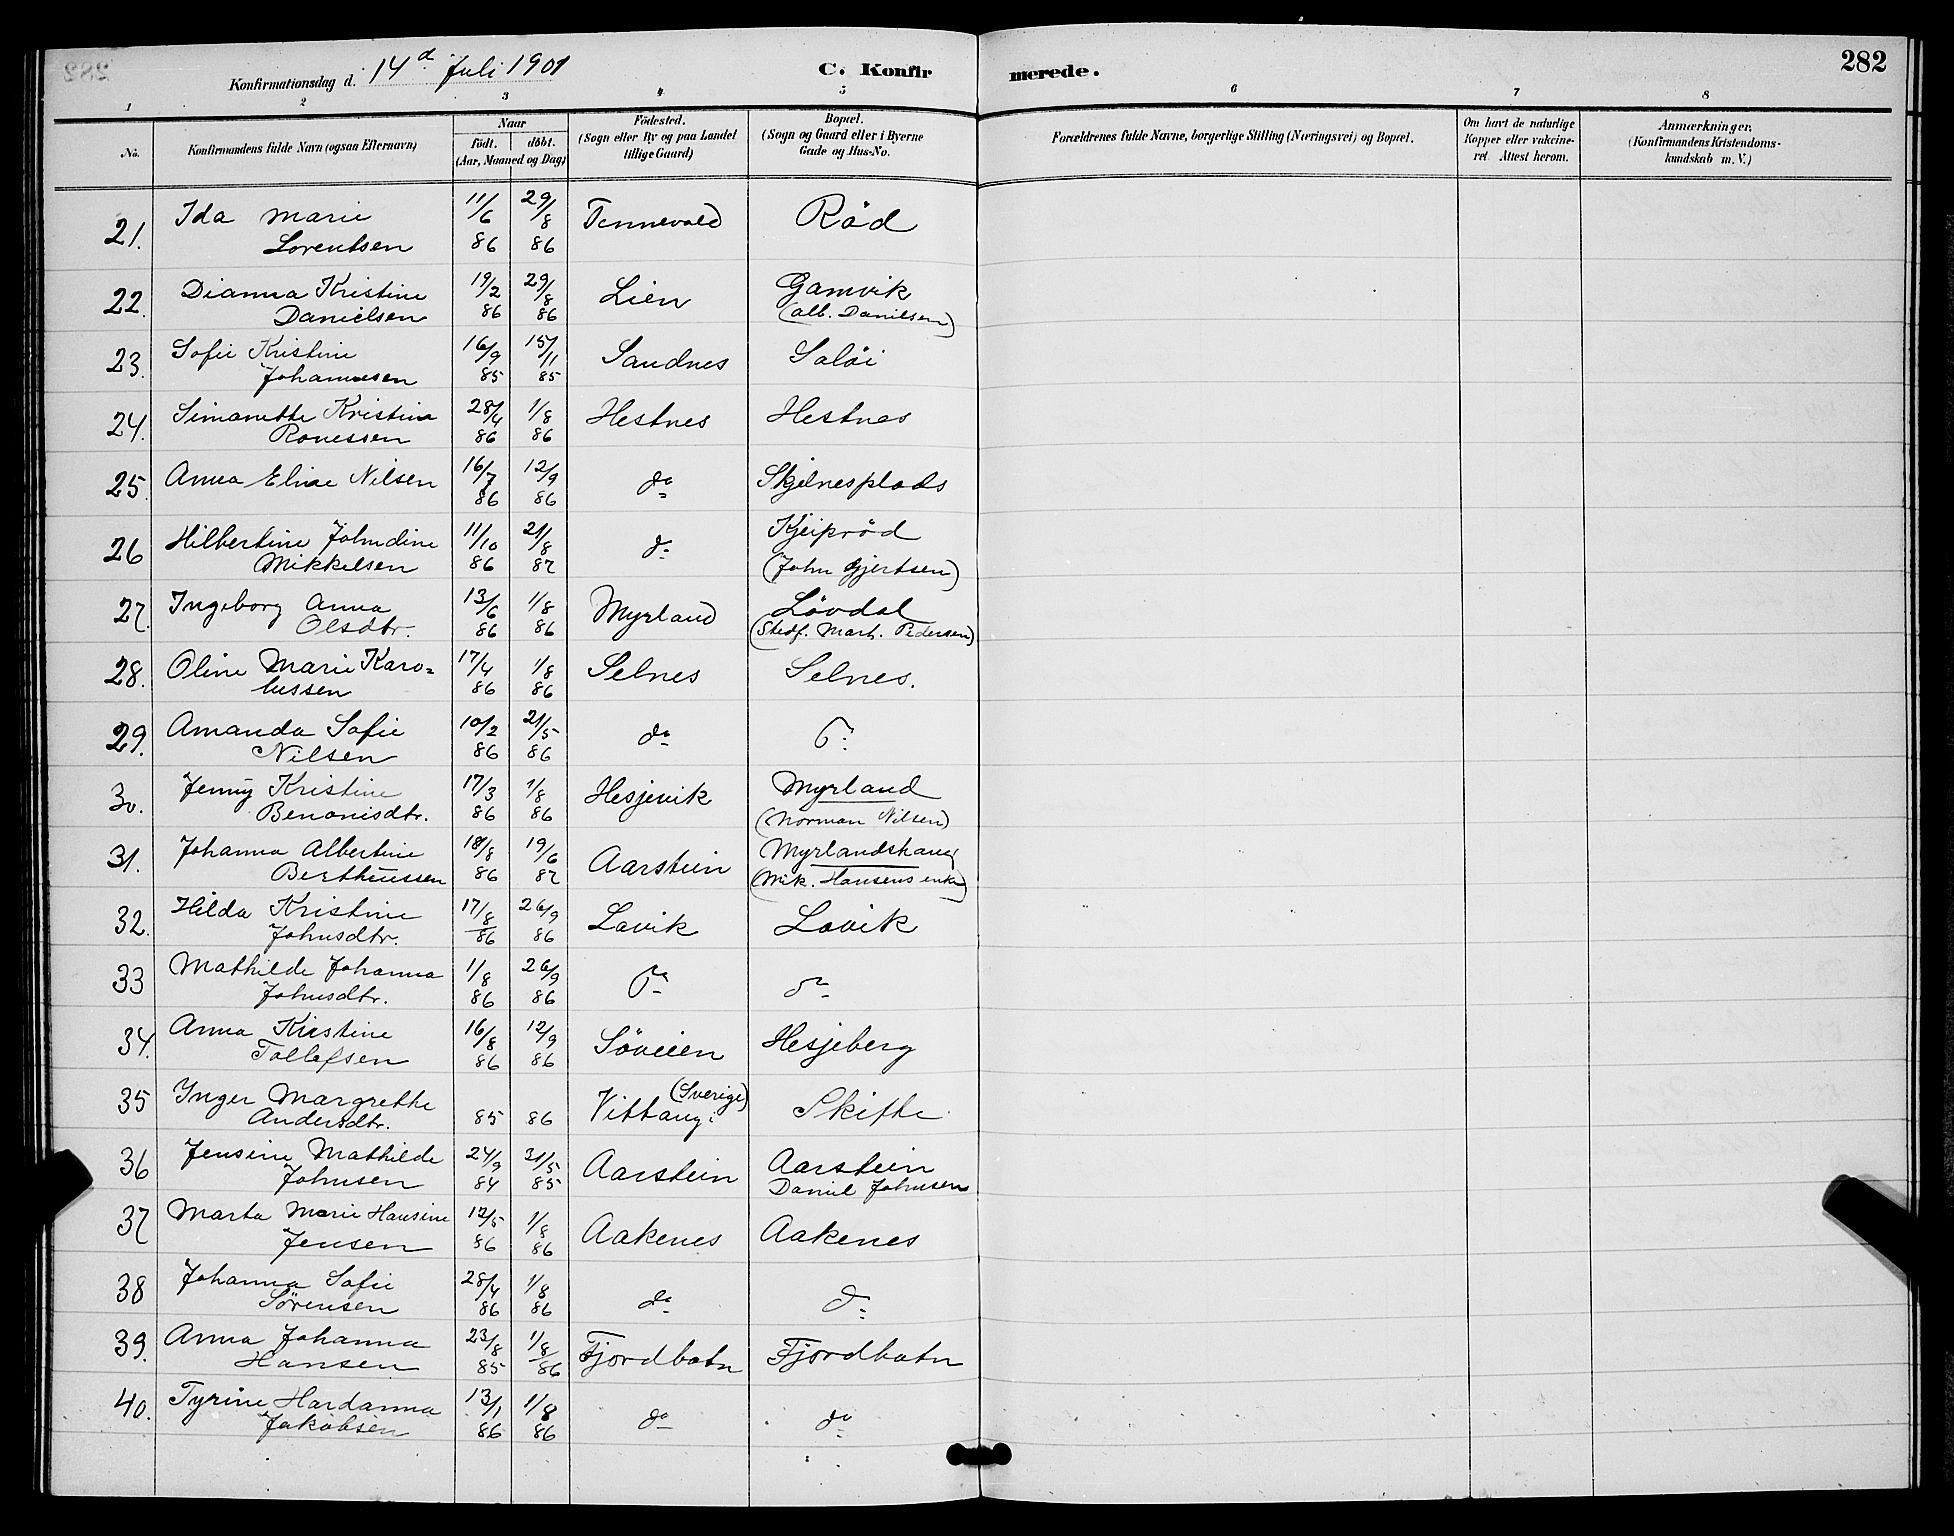 282
Konfirmationsdag d. 14d Juli 1901
C. Konfir merede.
1 2 3 4 5 6 7 8
No.
Konfirmandens fulde Navn (ogsaa Efternavn)
Naar
födt. döbt.
(Aar, Maaned og Dag)
Födested.
(Sogn eller By og paa Landet
tillige Gaard)
Bopæl.
(Sogn og Gaard eller i Byerne
Gade og Hus-No.
Forældrenes fulde Navne, borgerlige Stilling (Næringsvei) og Bopæl.
Om havt de naturlige
Kopper eller vakcine-
ret. Attest herom.
Anmærkninger,
(Konfirmandens Kristendoms-
kundskab m. V.)
21. Ida Marie 11/6 29/8 Tennevold Röd
Lorentsen 86 86
22. Dianna Kristine 19/2 29/8 Lien Gamvik
Danielsen 86 86 (alb. Danilsen)
23. Sofie Kristine 16/9 15/11 Sandnes Salöi
Johannesen 85 85
24. Simanette Kristina 28/4 1/8 Hestnes Hestnes
Ronessen 86 86
25. Anna Eline Nilsen 16/7 12/9 do Skjelnesplads
86 86
26 Hilbertine Johndine 11/10 21/8 do Kjeiprød
Mikkelsen 86 87 (John Gjertsen)
27. Ingeborg Anna 13/6 1/8 Myrland Lövdal
Olsdtr. 86 86 (Stedf. Mart. Pedersen)
28. Oline Marie Karo= 17/4 1/8 Selnes Selnes.
lussen 86 86
29. Amanda Sofie 10/2 21/5 do do
Nilsen 86 86
30. Jenny Kristine 17/3 1/8 Hesjevik Myrland
Benonisdtr. 86 86 (Norman Nilsen)
31. Johanna Albertine 18/8 19/6 Aarstein Myrlandshaug
Bertheussen 86 87 (Mik. Hansens enke)
32. Hilda Kristine 17/8 26/9 Lavik Lavik
Johnsdtr. 86 86
33 Mathilde Johanna 1/8 26/9 do do
Johnsdtr. 86 86
34. Anna Kristine 16/8 12/9 Söveien Hesjeberg
Tollefsen 86 86
35 Inger Margrethe (Sverige)
Andersdtr. 85 86 Vittangi Skifte
36 Jensine Mathilde 24/9 31/5 Aarstein Aarstein
Johnsen 84 85 Daniel Johnsen
37 Marta Marie Hansine 12/5 1/8 Aakenes Aakenes
Jensen 86 86
38 Johanna Sofie 28/4 1/8 do do
Sörensen 86 86
39. Anna Johanna 23/8 1/8 Fjordbotn Fjordbotn
Hansen 85 86
40. Tyrine Hardanna 13/1 1/8 do do
Jakobsen 86 86